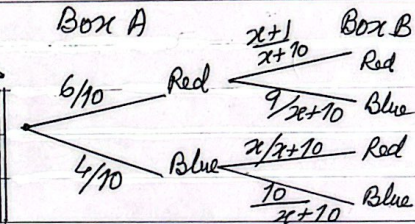 Box A
Box B
6/10
Red
x+1/x+10
Red
9/x+10
Blue
4/10
Blue
x/x+10
Red
10/x+10
Blue